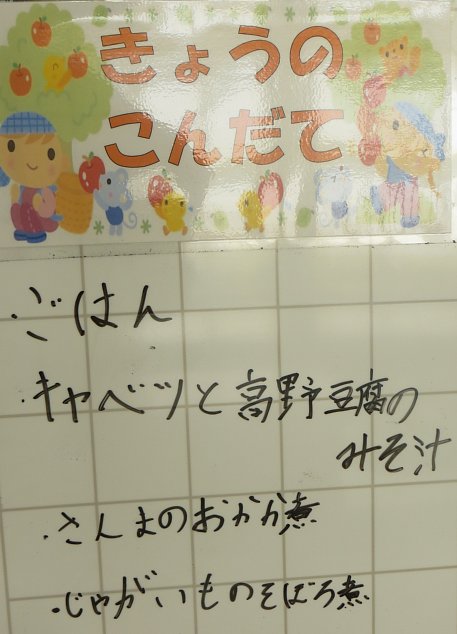 きょうの
こんだて
・ごはん
・キャベツと高野豆腐の
みそ汁
・さんまのおかか煮
・じゃがいものそぼろ煮